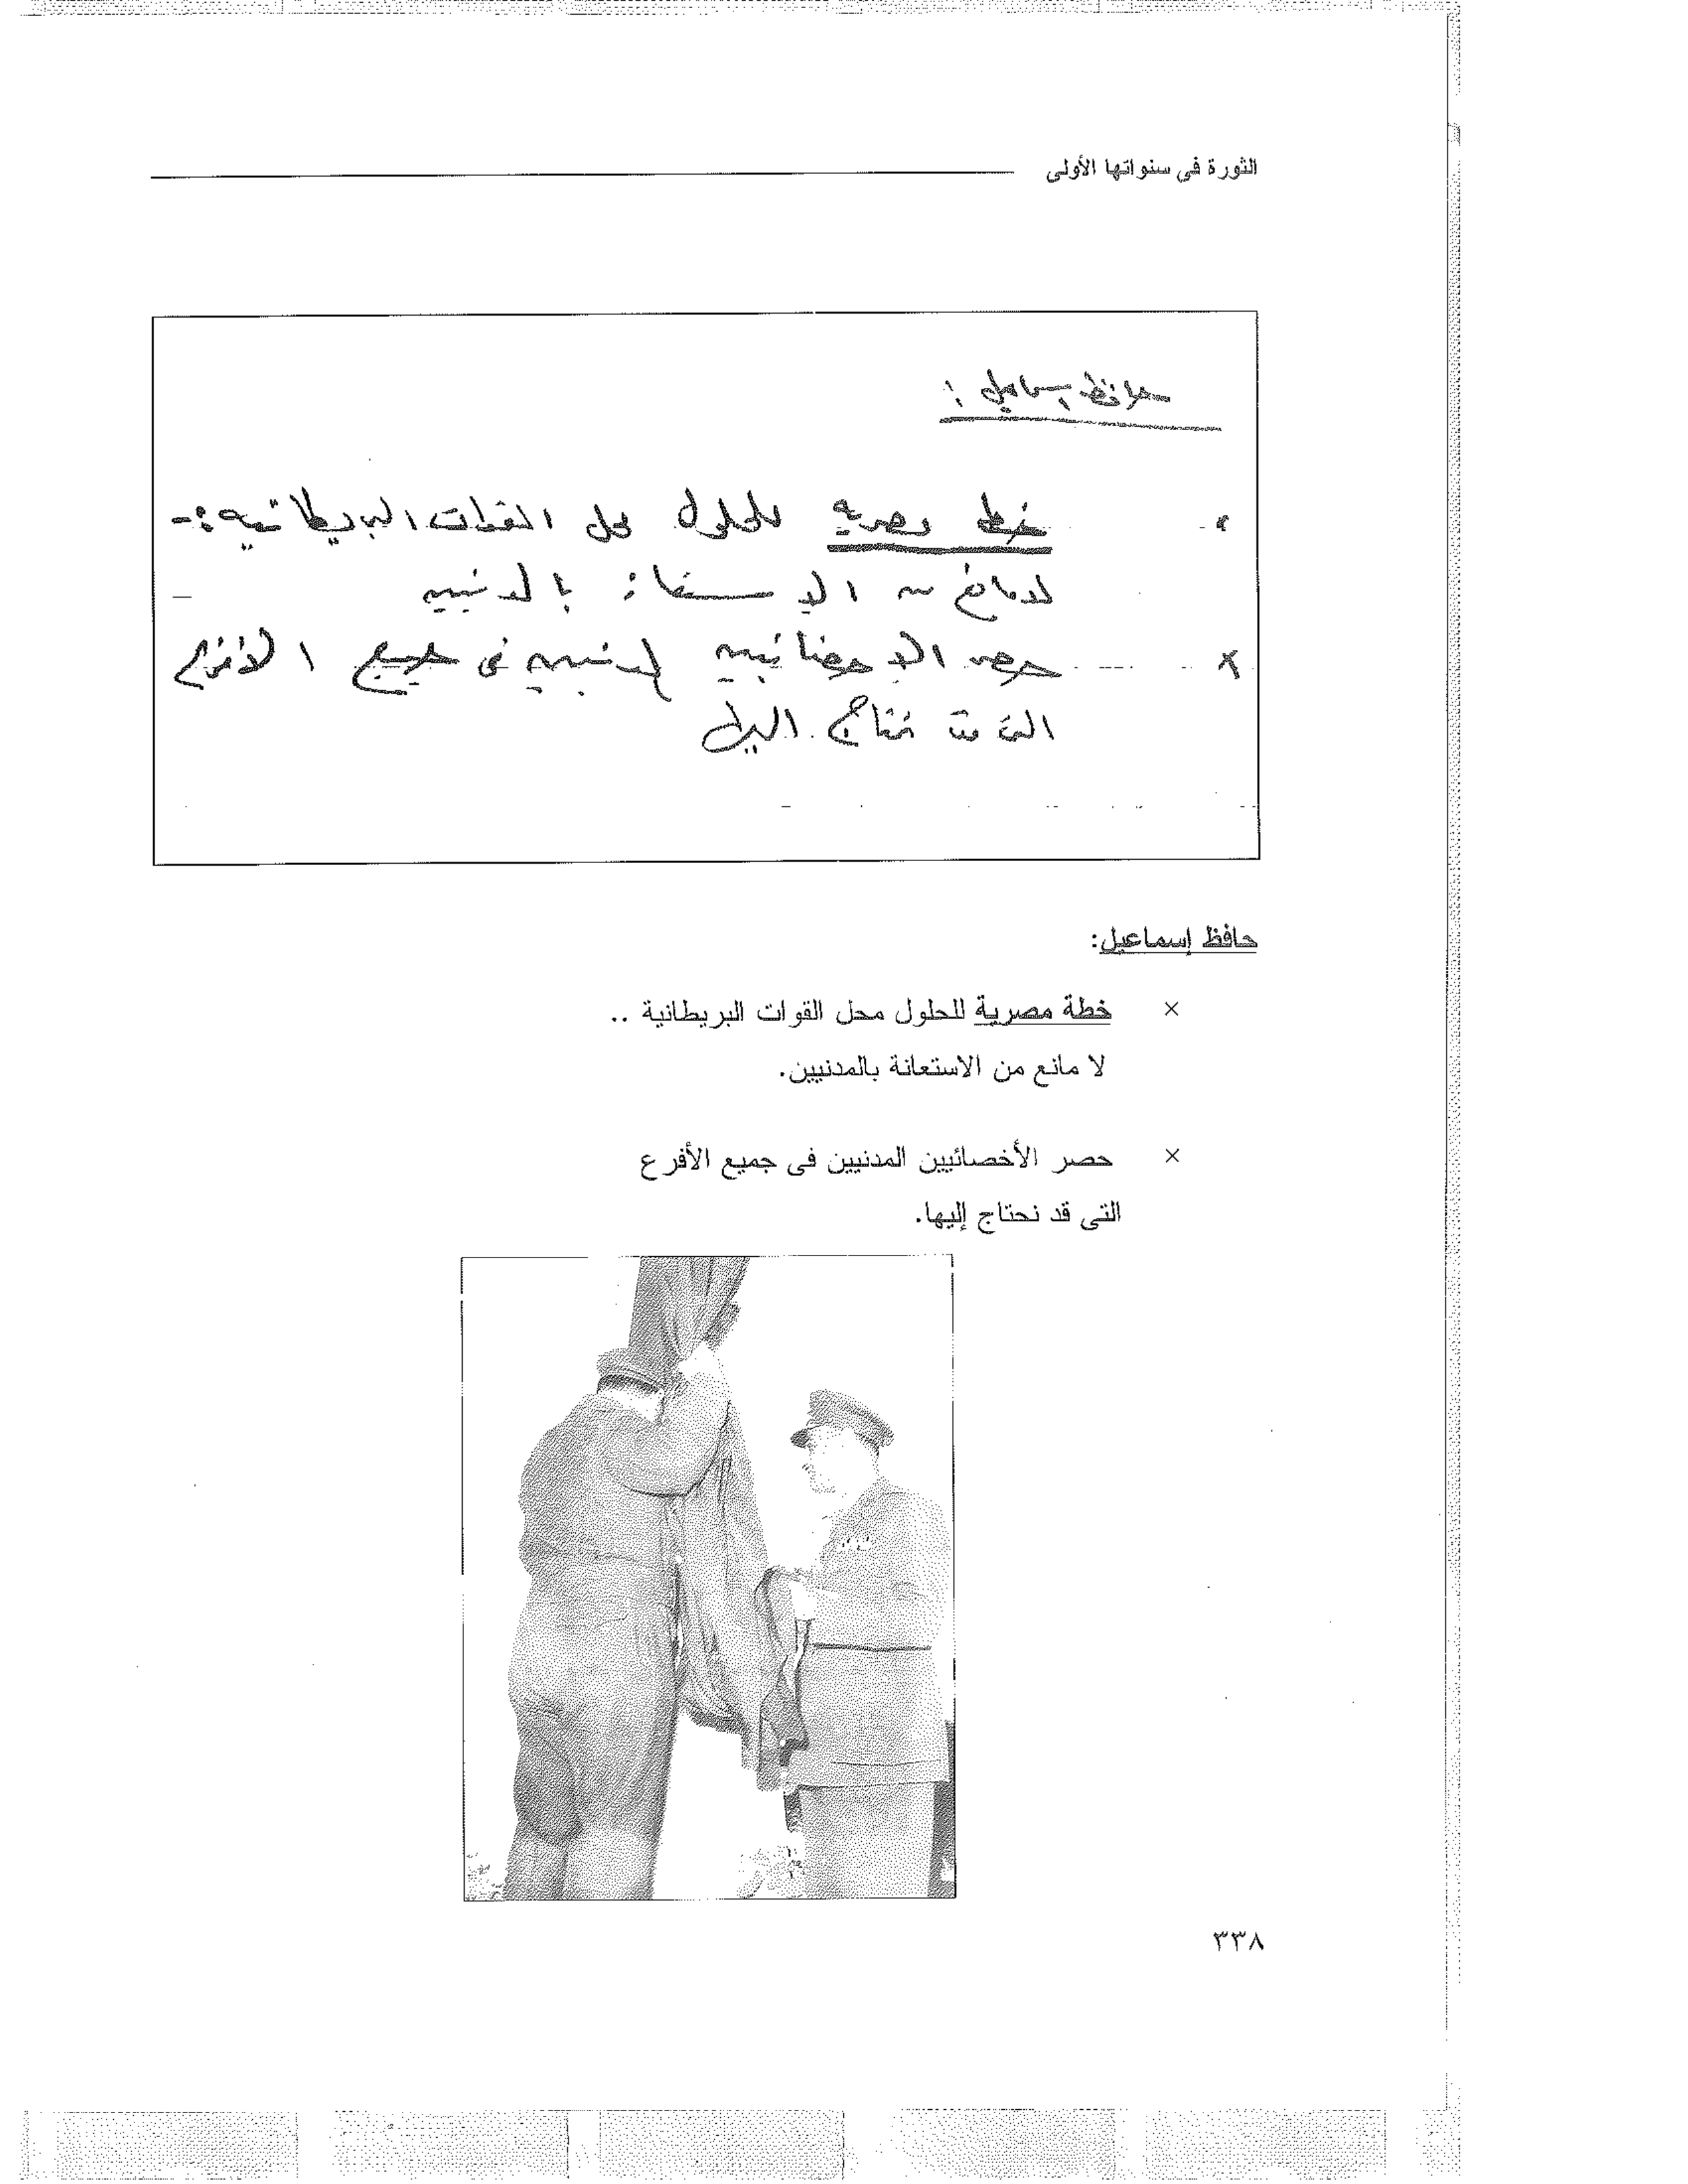 الثورة فى سنواتها الأولى
حافظ إسماعيل :
خطة مصرية للحلول محل القوات البريطانية :-
لا مانع من الاستعانة بالمدنيين
× حصر الاخصائيين المدنيين فى جميع الأفرع
التى قد نحتاج اليها
حافظ إسماعيل:
× خطة مصرية للحلول محل القوات البريطانية ..
لا مانع من الاستعانة بالمدنيين.
× حصر الأخصائيين المدنيين فى جميع الأفرع
التى قد نحتاج إليها.
٣٣٨